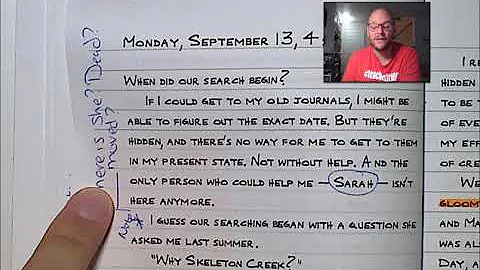 Monday, September 13, 4
When did our search begin?
If I could get to my old journals, I might be
able to figure out the exact date. But they're
hidden, and there's no way for me to get to them
in my present state. Not without help. And the
only person who could help me — Sarah — isn't
here anymore.
I guess our searching began with a question she
asked me last summer.
"Why Skeleton Creek?"
here is she? Dead?
moved?
I re
hidden
to be t
of eve
my eff
of cre
We
gloom
and Ma
was al
Day, a